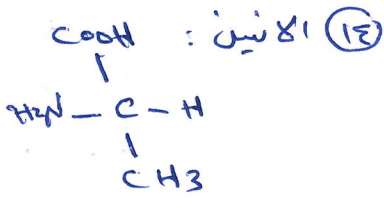 ١٤ الانين :
COOH
H2N - C - H
CH3